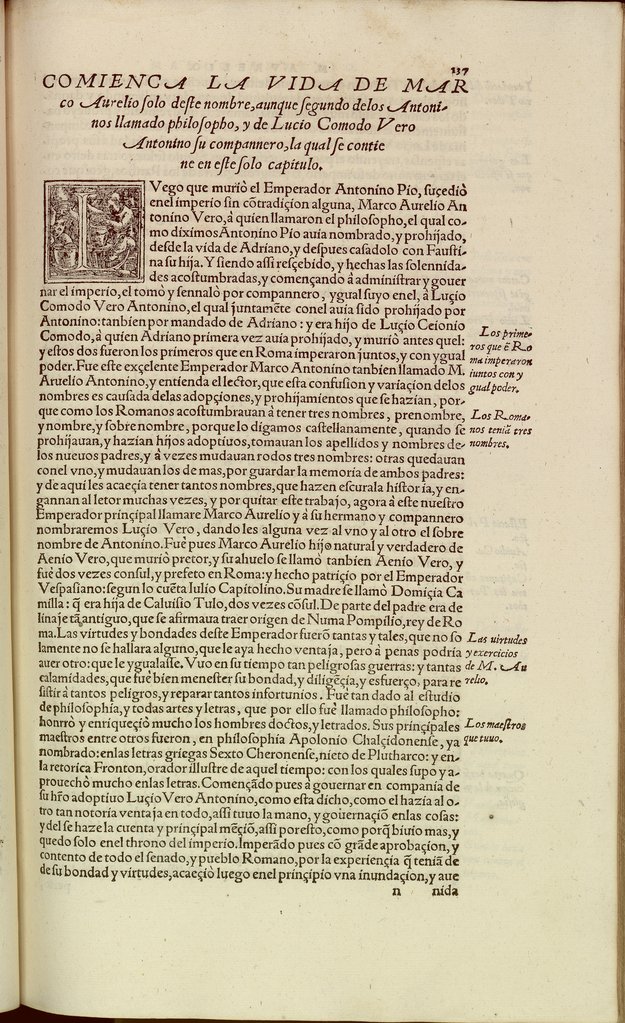 137
COMIENCA LA VIDA DE MAR
co Aurelio solo deste nombre, aunque segundo delos Antoni-
nos llamado philosopho, y de Lucio Comodo Vero
Antonino su compannero, la qual se contie
ne en este solo capitulo.
LVego que muriò el Emperador Antonino Pio, suçediò
enel imperio sin cõtradiçion alguna, Marco Aurelio An
tonino Vero, à quien llamaron el philosopho, el qual co-
mo diximos Antonino Pio auia nombrado, y prohijado,
desde la vida de Adriano, y despues casadolo con Fausti-
na su hija. Y siendo assi resçebido, y hechas las solennida-
des acostumbradas, y començando à administrar y gouer
nar el imperio, el tomò y sennalò por compannero, y gual suyo enel, à Luçio
Comodo Vero Antonino, el qual juntamẽte conel auia sido prohijado por
Antonino: tanbien por mandado de Adriano: y era hijo de Luçio Ceionio
Comodo, à quien Adriano primera vez auia prohijado, y muriò antes quel:
y estos dos fueron los primeros que en Roma imperaron juntos, y con ygual
poder. Fue este exçelente Emperador Marco Antonino tanbien llamado M.
Aruelio Antonino, y entienda el lector, que esta confusion y variaçion delos
nombres es causada delas adopçiones, y prohijamientos que se hazian, por-
que como los Romanos acostumbrauan à tener tres nombres, prenombre,
y nombre, y sobre nombre, porque lo digamos castellanamente, quando se
prohijauan, y hazian hijos adoptiuos, tomauan los apellidos y nombres de-
los nueuos padres, y à vezes mudauan rodos tres nombres: otras quedauan
conel vno, y mudauan los de mas, por guardar la memoria de ambos padres:
y de aqui les acaeçia tener tantos nombres, que hazen escurala historia, y en-
gannan al letor muchas vezes, y por quitar este trabajo, agora à este nuestro
Emperador prinçipal llamare Marco Aurelio y à su hermano y compannero
nombraremos Luçio Vero, dando les alguna vez al vno y al otro el sobre
nombre de Antonino. Fuè pues Marco Aurelio hijo natural y verdadero de
Aenio Vero, que muriò pretor, y su ahuelo se llamò tanbien Aenio Vero, y
fuè dos vezes consul, y prefeto en Roma: y hecho patriçio por el Emperador
Vespasiano: segun lo cuẽta Iulio Capitolino. Su madre se llamò Domiçia Ca
milla: q̃ era hija de Caluisio Tulo, dos vezes cõsul. De parte del padre era de
linaje tã antiguo, que se afirmaua traer origen de Numa Pompilio, rey de Ro
ma. Las virtudes y bondades deste Emperador fuerõ tantas y tales, que no so
lamente no se hallara alguno, que le aya hecho ventaja, pero à penas podria
auer otro: que le ygualasse. Vuo en su tiempo tan peligrosas guerras: y tantas
calamidades, que fuè bien menester su bondad, y diligẽçia, y esfuerço, para re
sistir à tantos peligros, y reparar tantos infortunios. Fuè tan dado al estudio
de philosophia, y todas artes y letras, que por ello fuè llamado philosopho:
honrrò y enriqueçiò mucho los hombres doctos, y letrados. Sus prinçipales
maestros entre otros fueron, en philosophia Apolonio Chalçidonense, ya
nombrado: enlas letras griegas Sexto Cheronense, nieto de Plutharco: y en-
la retorica Fronton, orador illustre de aquel tiempo: con los quales supo y a-
prouechò mucho enlas letras. Començãdo pues à gouernar en compania de
su hr̃o adoptiuo Luçio Vero Antonino, como esta dicho, como el hazia al o-
tro tan notoria ventaja en todo, assi tuuo la mano, y gouernaçiõ enlas cosas:
y del se haze la cuenta y prinçipal mẽçiõ, assi por esto, como porq̃ biuio mas, y
quedo solo enel throno del imperio. Imperãdo pues cõ grãde aprobaçion, y
contento de todo el senado, y pueblo Romano, por la experiençia q̃ teniã de
de su bondad y virtudes, acaeçiò luego enel prinçipio vna inundaçion, y aue
n nida
Los prime-
ros que ẽ Ro
ma imperaron
juntos con y
gual poder.
Los Roma-
nos teniã tres
nombres.
Las virtudes
y exercicios
de M. Au
relio.
Los maestros
que tuuo.